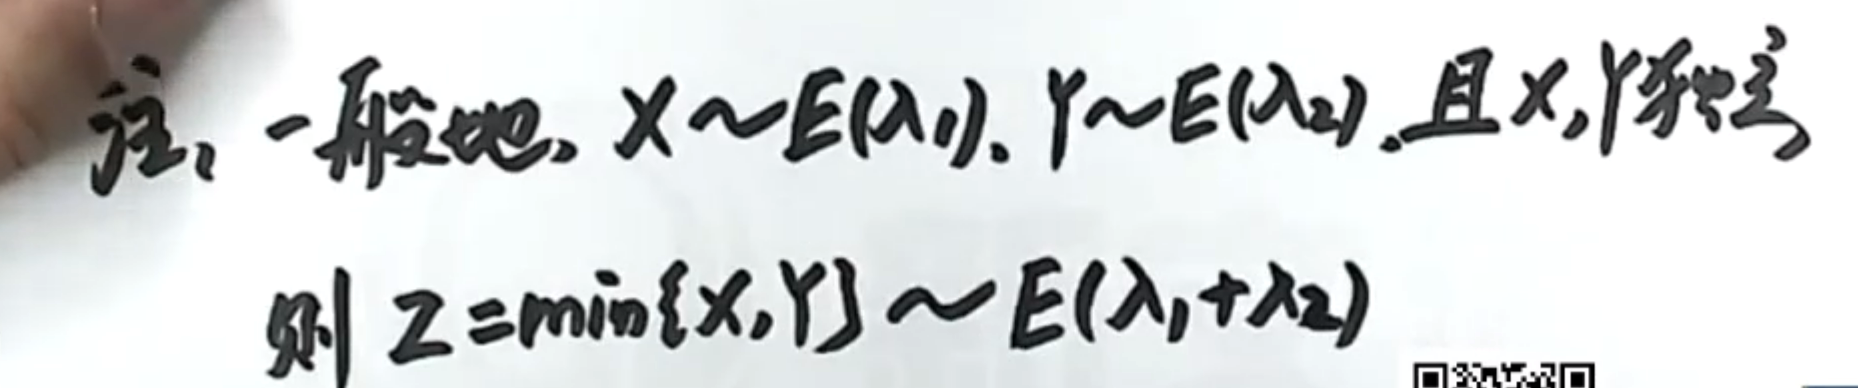 注、一般地、X~E(λ₁). Y~E(λ₂).且X,Y独立,
则 Z=min{X,Y}~E(λ₁+λ₂)